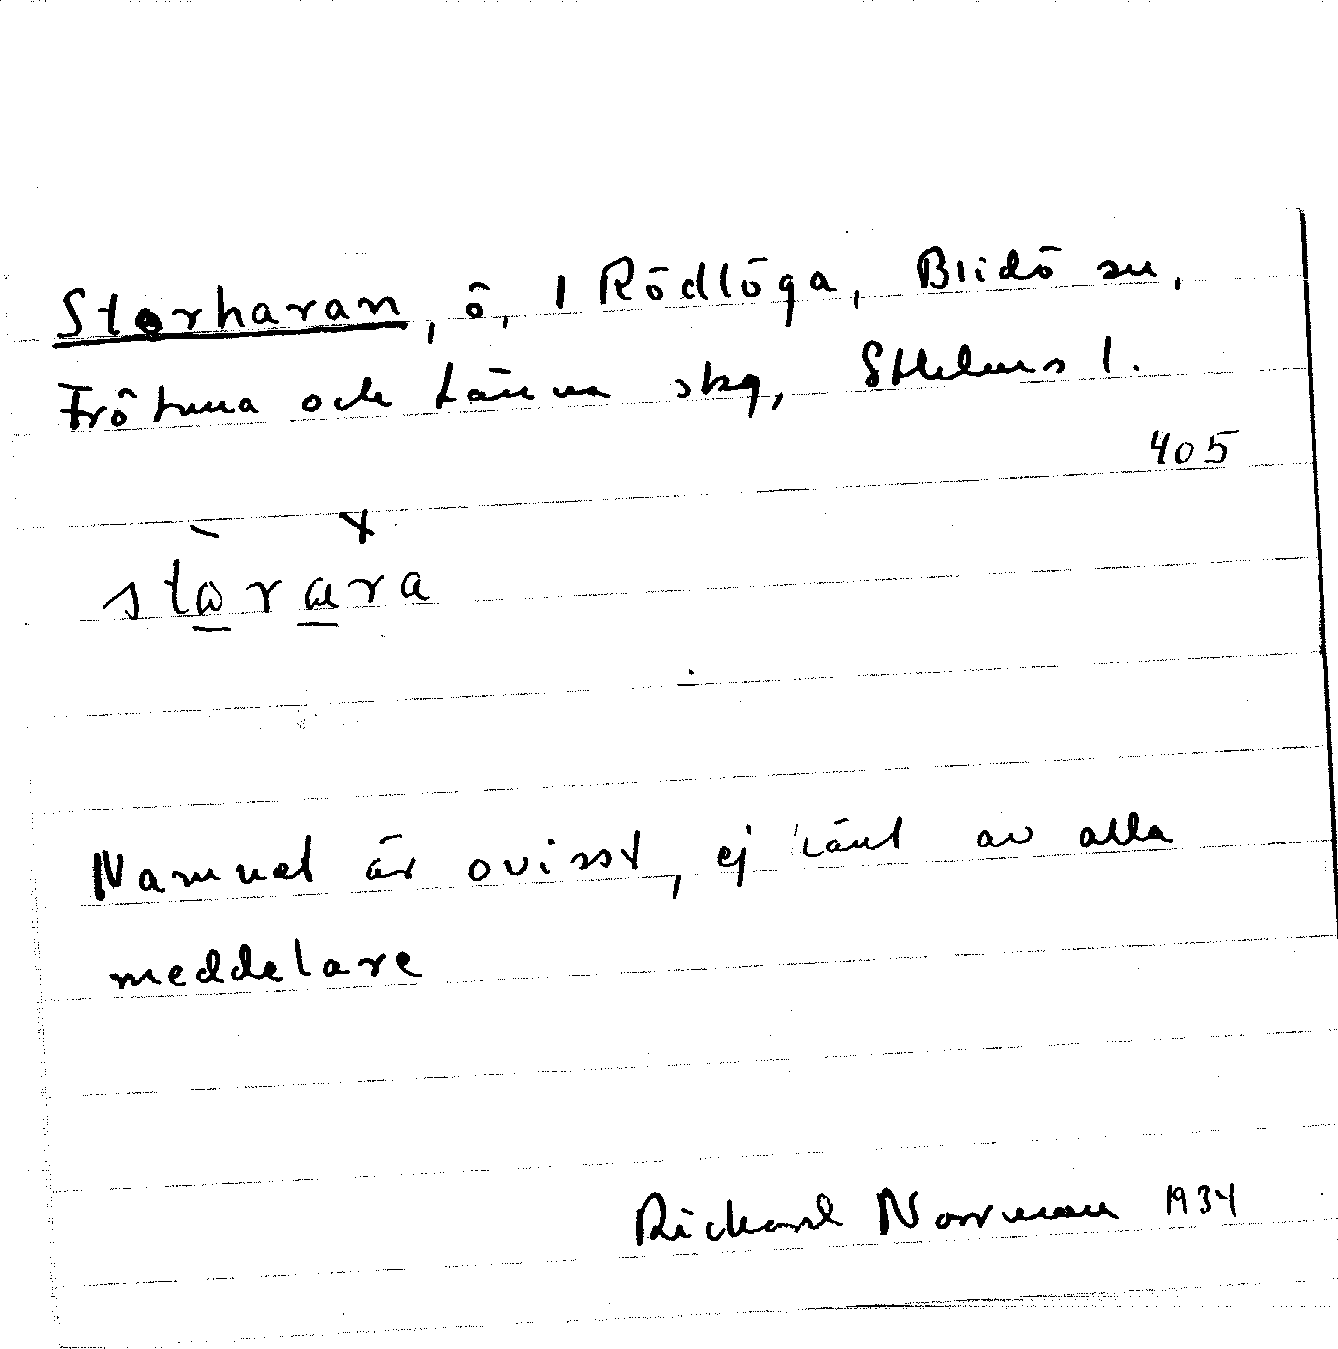 Storharan, ö, 1 Rödlöga, Blidö sn,
Frötuna och Länna skg, Sthlms l.
405
starara
Namnet är ovisst, ej känt av alla
meddelare
Rickard Norrman 1934